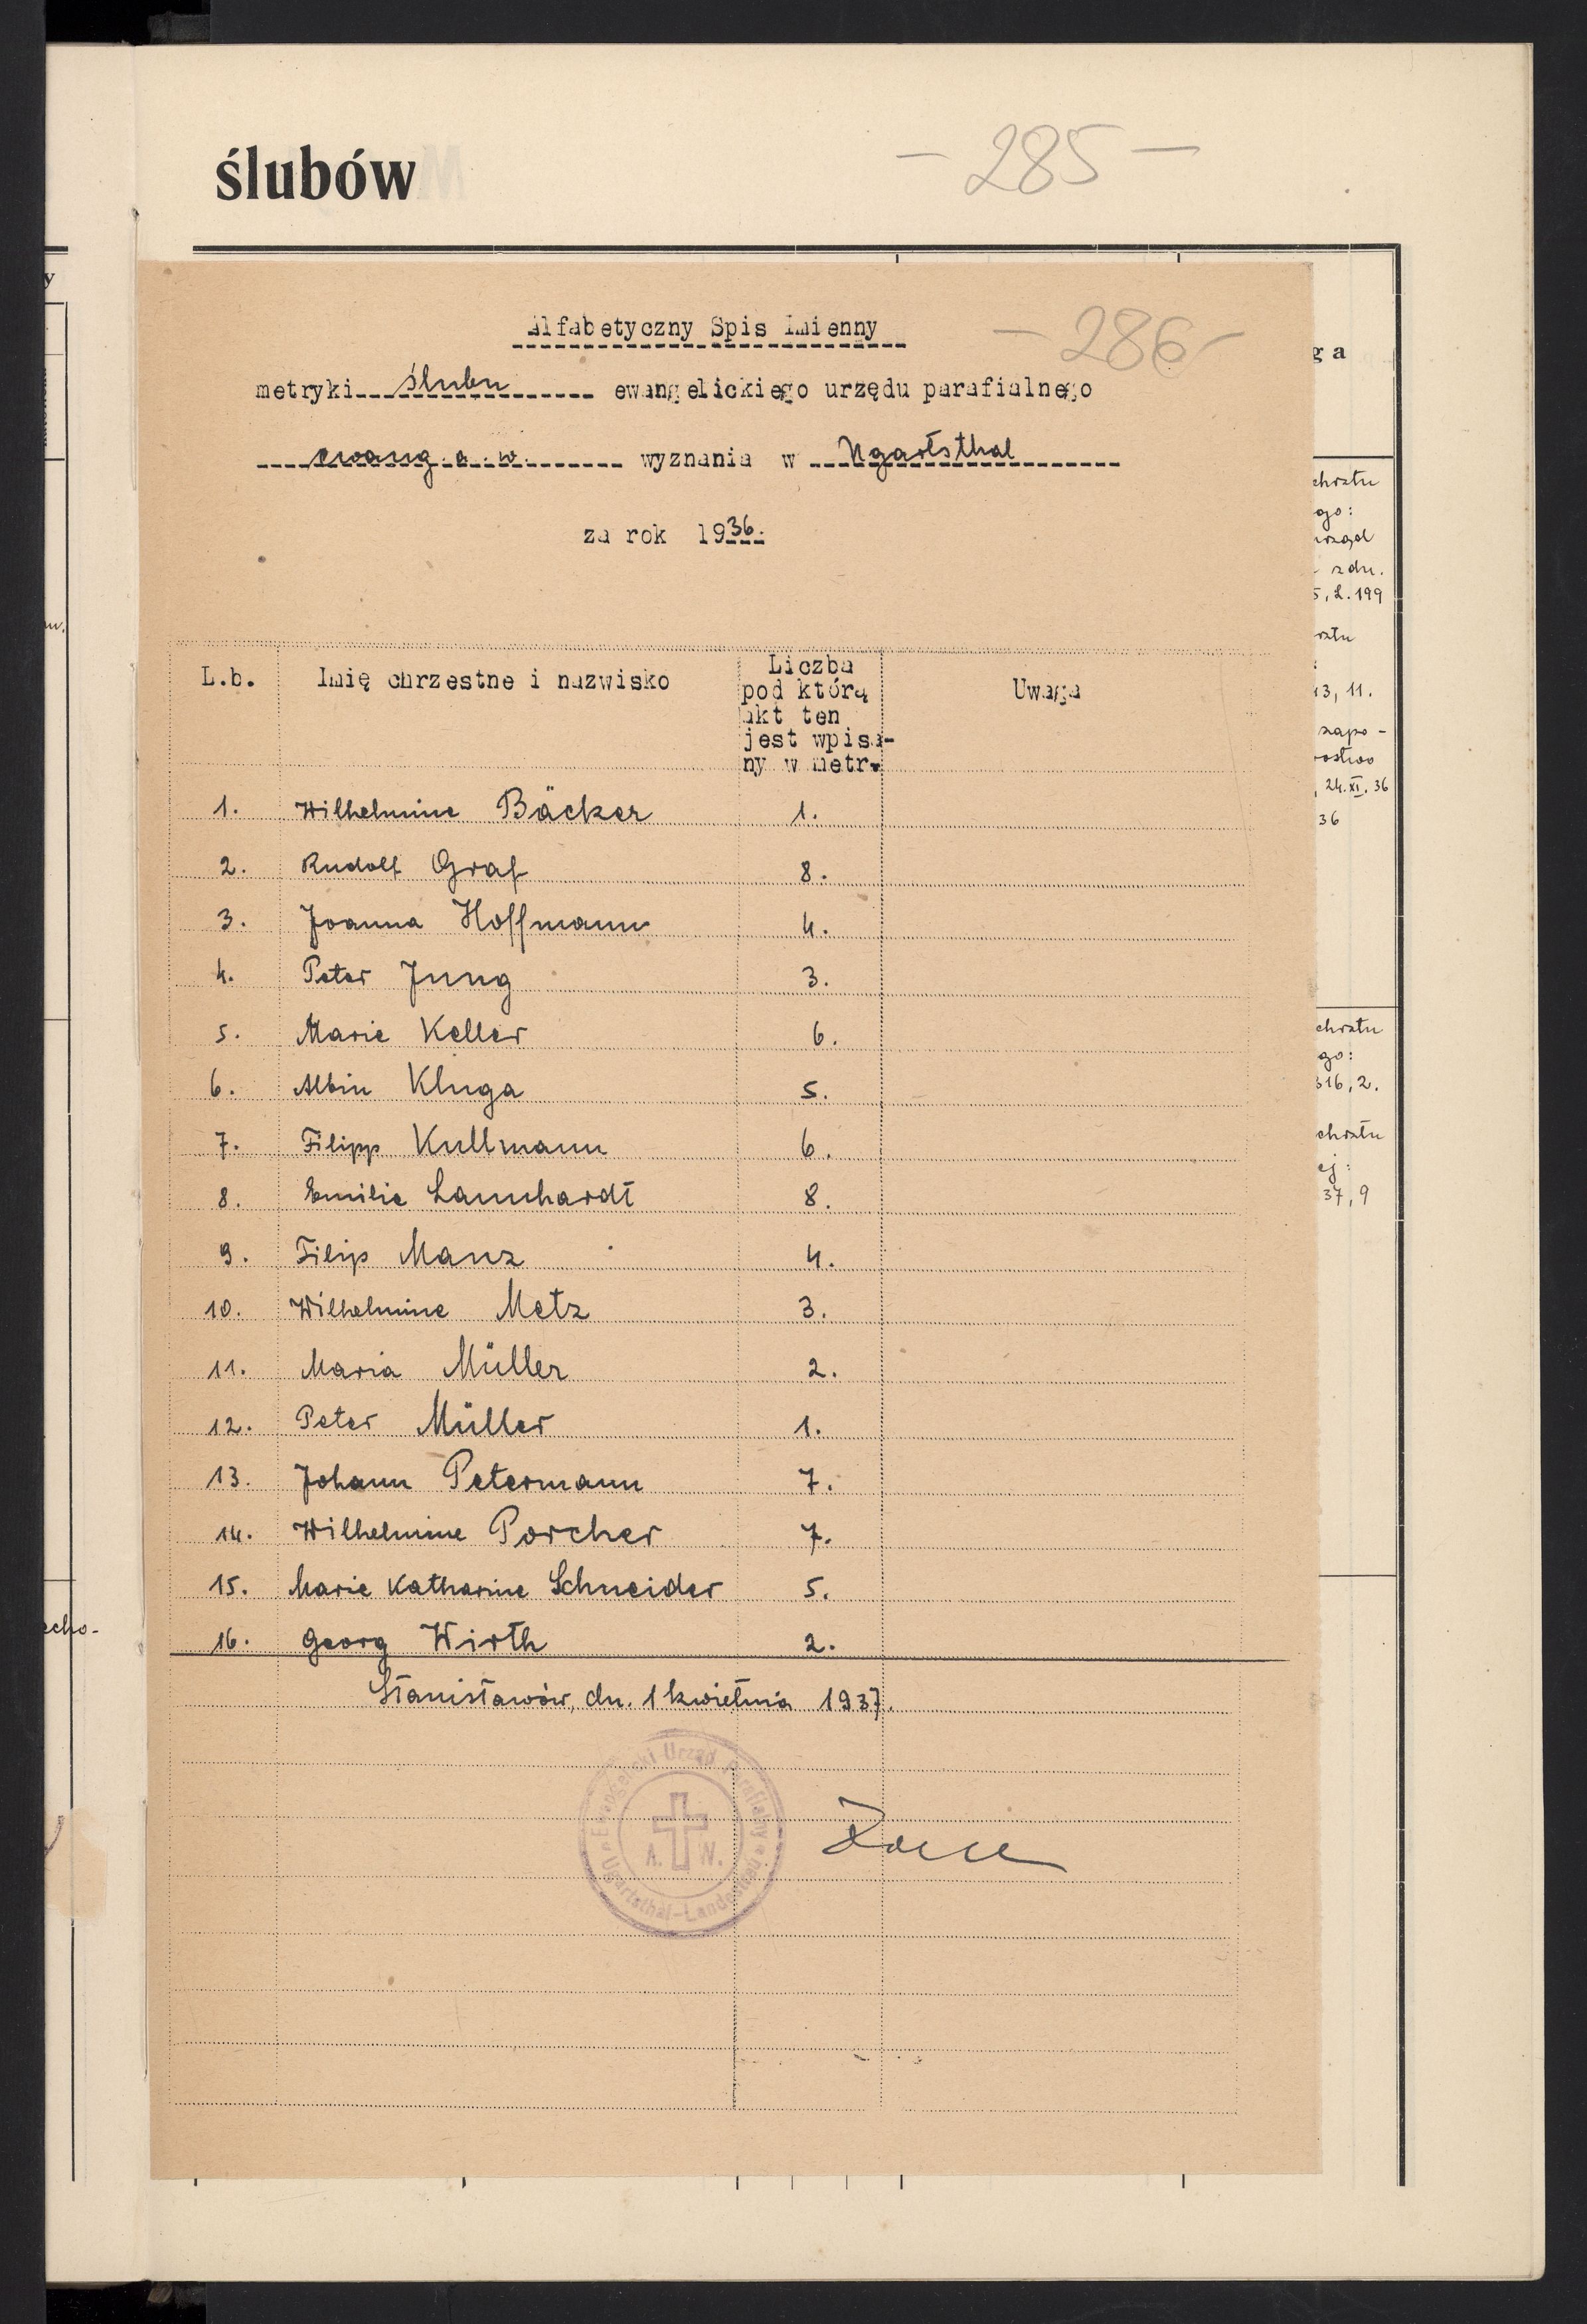 ślubów
- 285 -
Alfabetyczny Spis Imienny
- 286 -
metryki ślubu ewangelickiego urzędu parafialnego
ewang. a. w. wyznania w Ugartsthal
za rok 1936.
L.b. Imię chrzestne i nazwisko Liczba pod którą akt ten jest wpisa- ny w metr. Uwaga
1. Wilhelmine Bäcker 1.
2. Rudolf Graf 8.
3. Joanna Hoffmann 4.
4. Peter Jung 3.
5. Marie Keller 6.
6. Albin Kluga 5.
7. Filipp Kullmann 6.
8. Emilie Lannhardt 8.
9. Filip Manz 4.
10. Wilhelmine Metz 3.
11. Maria Müller 2.
12. Peter Müller 1.
13. Johann Petermann 7.
14. Wilhelmine Porcher 7.
15. Marie Katharine Schneider 5.
16. Georg Wirth 2.
Stanisławów, dn. 1 kwietnia 1937.
Ewangelicki Urząd Parafialny
A. W.
Ugartsthal-Landestreu
y
ga
chrztu
go:
urząd
z dn.
5, L. 199
rztu
13, 11.
zapo-
rostwo
, 24.XI.36
36
chrztu
go:
316, 2.
chrztu
ej:
37, 9
echo-